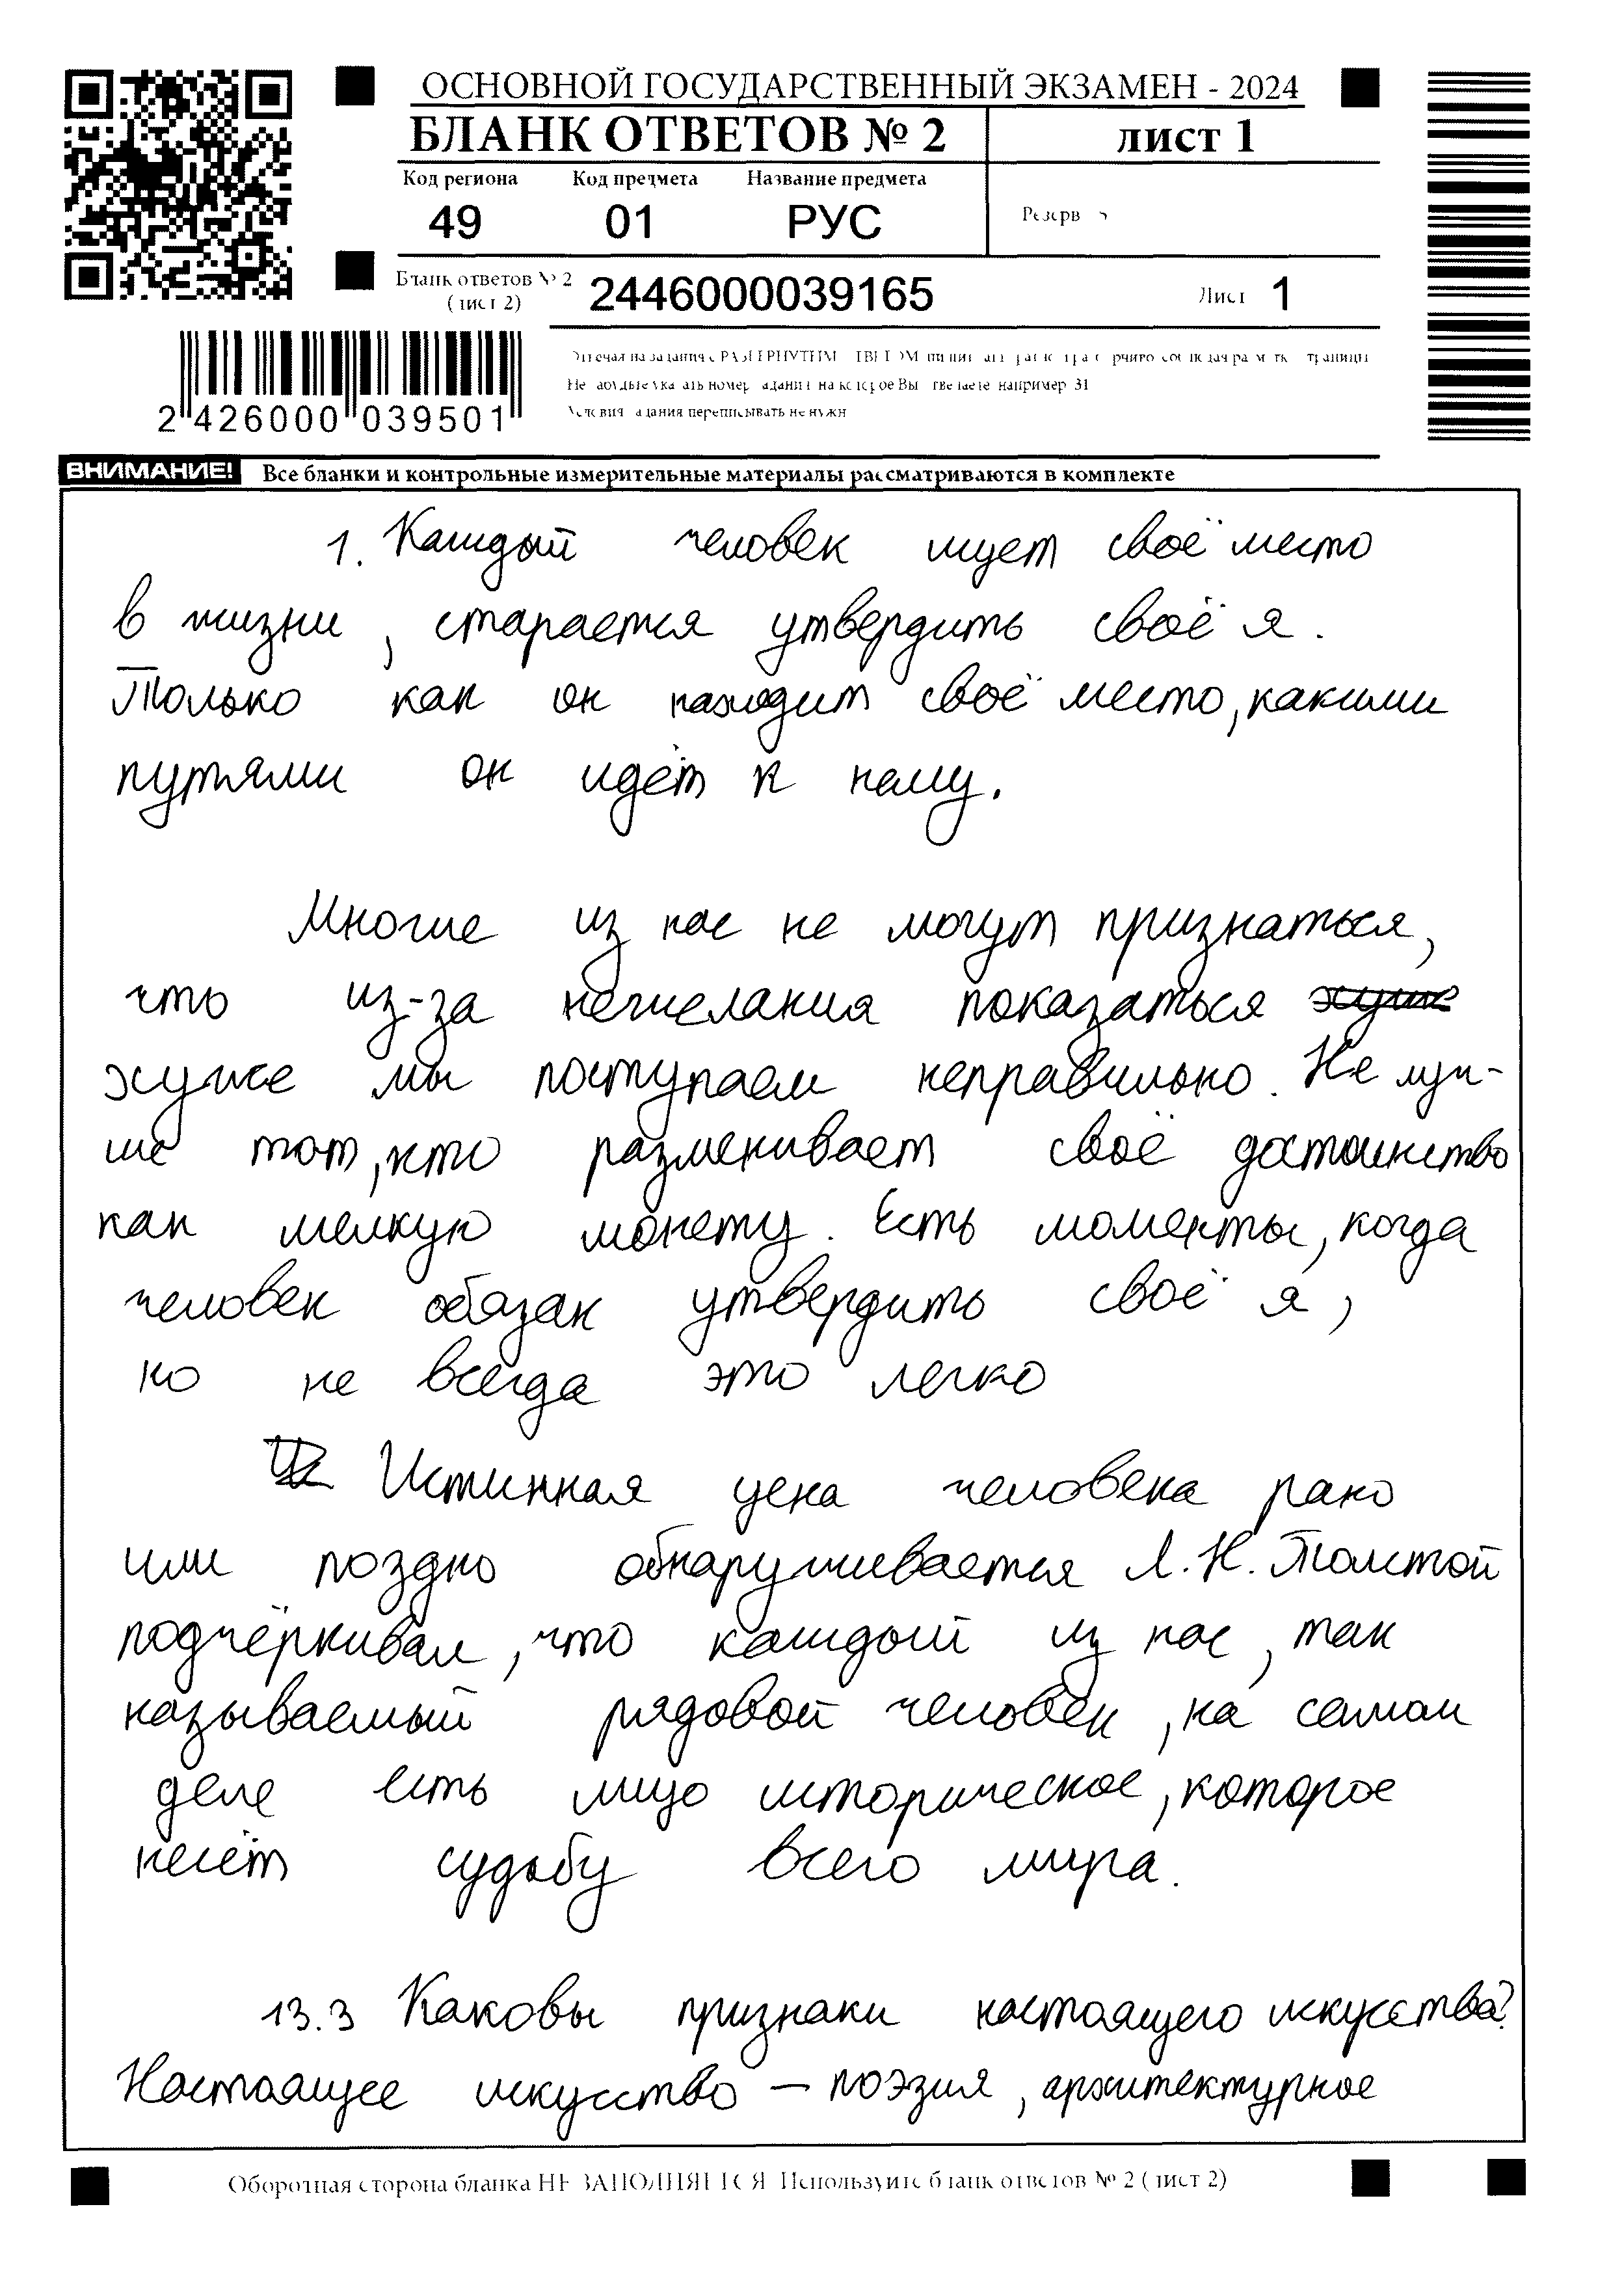 ОСНОВНОЙ ГОСУДАРСТВЕННЫЙ ЭКЗАМЕН - 2024
БЛАНК ОТВЕТОВ № 2
лист 1
Код региона Код предмета Название предмета
49 01 РУС
Резерв
Бланк ответов № 2
(лист 2)
2446000039165
Лист 1
2 426000 039501
Не забудьте указать номер задания на которое Вы отвечаете например 31
Условия задания переписывать не нужно
ВНИМАНИЕ! Все бланки и контрольные измерительные материалы рассматриваются в комплекте
1. Каждый человек ищет своё место
в жизни, старается утвердить своё я.
Только как он находит своё место, какими
путями он идёт к нему.
Многие из нас не могут признаться,
что из-за нежелания показаться хуже
хуже мы поступаем неправильно. Не луч-
ше тот, кто разменивает своё достоинство
как мелкую монету. Есть моменты, когда
человек обязан утвердить своё я,
но не всегда это легко
Истинная цена человека рано
или поздно обнаруживается Л.Н. Толстой
подчёркивал, что каждый из нас, так
называемый рядовой человек, на самом
деле есть лицо историческое, которое
несёт судьбу всего мира.
13.3 Каковы признаки настоящего искусства?
Настоящее искусство – поэзия, архитектурное
Оборотная сторона бланка НЕ ЗАПОЛНЯЕТСЯ Используйте бланк ответов № 2 (лист 2)